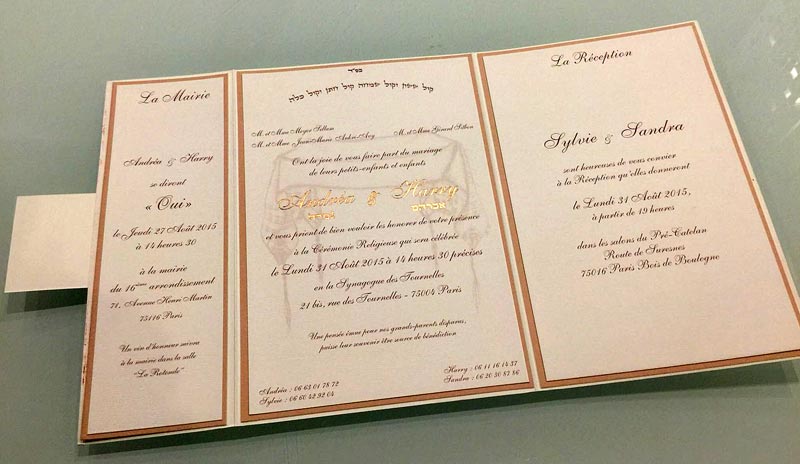 La Mairie
Andréa & Harry
se diront
« Oui »
le Jeudi 27 Août 2015
à 14 heures 30
à la mairie
du 16ème arrondissement
71, Avenue Henri Martin
75116 Paris
Un vin d'honneur suivra
à la mairie dans la salle
"La Rotonde"
בס"ד
קול ששון וקול שמחה קול חתן וקול כלה
M. et Mme Meyer Sillam
M. et Mme Jean-Marie M. et Mme Gérard Sibon
Ont la joie de vous faire part du mariage
de leurs petits-enfants et enfants
Andréa & Harry
אברהם
et vous prient de bien vouloir les honorer de votre présence
à la Cérémonie Religieuse qui sera célébrée
le Lundi 31 Août 2015 à 14 heures 30 précises
en la Synagogue des Tournelles
21 bis, rue des Tournelles - 75004 Paris
Une pensée émue pour nos grands-parents disparus,
puisse leur souvenir être source de bénédiction
Andréa : 06 63 01 78 72
Sylvie : 06 60 42 92 04
Harry : 06 11 16 14 37
Sandra : 06 20 30 87 86
La Réception
Sylvie & Sandra
sont heureuses de vous convier
à la Réception qu'elles donneront
le Lundi 31 Août 2015,
à partir de 19 heures
dans les salons du Pré-Catelan
Route de Suresnes
75016 Paris Bois de Boulogne